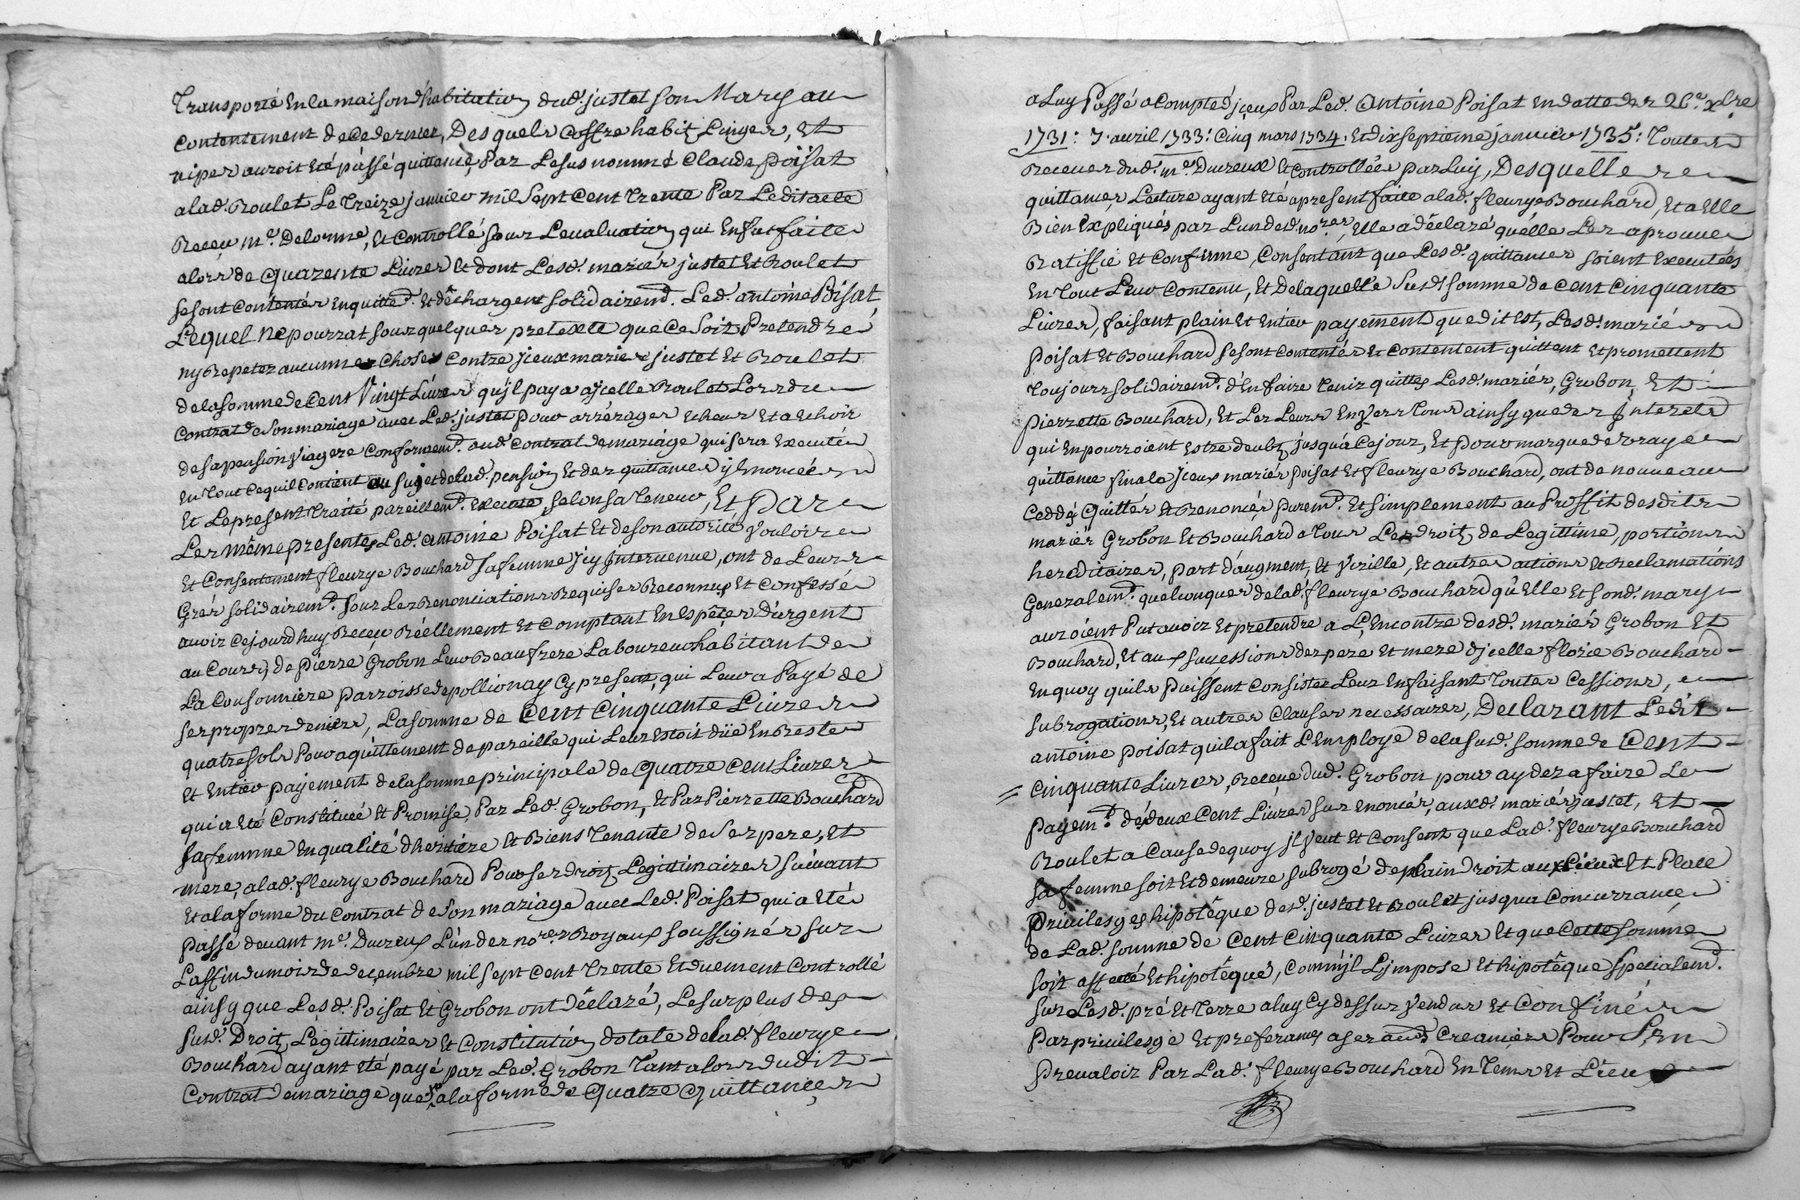 Transporté En la maison d'habitation dud. justet son Mary au
Contentement de Ce dernier, Des quels Coffre habit, Linges, Et
nipes auroit Eté passé quittance, Par Le sus nommé Claude poisat
a lad. Roulet Le Treize janvier mil sept Cent Trente Par Ledit acte
Receu me. Delorme, Et Controllé sous L'evaluation qui En fut faite
alors de quarente Livres Et dont Lesd. mariés justet Et Roulet
se sont Contentés En quittent. Et déchargent solidairemt. Led. antoine Poisat
Lequel ne pourrat sous quelques pretexte que Ce soit, Pretendre
ny Repeter aucunnes Choses Contre jceux mariés justet Et Roulat
de la somme de Cent Vingt Livres qu'il paya a jcelle Roulet Lors du
Contrat de son mariage avec Led. justet pour arrérages Echeus Et a Echoir
de sa pension viagere Conformemt. aud. Contrat de mariage qui sera Executé
En Tout Ce quil Contient au sujet de lad. pension Et des quittances y Enoncées
Et Le present Traité pareillemt. Executé, selon sa Teneur, Et Par
Les même presentes Led. antoine Poisat Et de son autorité vouloir
Et Consentement fleurye Bouchard sa femme jcy Intervenue, ont de Leurs
Grés solidairemt. sous Les Renonciations Requises Reconnus Et Confessé
avoir Cejourdhuy Receu Réellement Et Comptant En Espéces D'argent
au Cours, de Pierre Grobon Leur Beaufrere Laboureur habitant de
La Cousonniere Parroisse de pollionay Cy present, qui Leur a Payé de
ses propres deniers, La somme de Cent Cinquante Livres
quatre sols Pour aquittement de pareille qui Leur Estoit düe En Reste
Et Entier payement de la somme principale de quatre Cent Livres
qui a Eté Constituée Et Promise, Par Led. Grobon, Et Par Pierrette Bouchard
sa femme En qualité d'heritiére Et Biens Tenante de ses pere, Et
mere, a lad. fleurye Bouchard Pour ses droits Legitimaires suivant
Et a la forme du Contrat de son mariage avec Led. Poisat qui a Eté
Passé devant me. Ducreux L'un des nores. Royaux soussignés sur
Laffin du mois de decembre mil sept Cent Trente Et duement Controllé
ainsy que Lesd. Poisat Et Grobon ont déclaré, Le surplus des
susd. Droits Legitimaires Et Constitution dotale de lad. fleurye
Bouchard ayant Eté payé par Led. Grobon Tant alors dudit
Contrat de mariage que a la forme de Quatre Quittances
a Luy Passé a Compte d'jceux Par Led. Antoine Poisat En datte des 26e. xbre
1731: 7. avril 1733: Cinq mars 1734, Et dix septieme janvier 1735: Toutes
Receues dud. me. Ducreux Et Controllées par Luy, Desquelles
quittances, Lecture ayant Eté a present faite a lad. fleurye Bouchard, Et a Elle
Bien Expliqués par L'un desd. nores. Elle a déclaré quélle Les aprouve
Ratiffie Et Confirme, Consentant que Lesd. quittances soient Executées
En Tout Leur Contenu, Et De laquelle Susd. somme de Cent Cinquante
Livres, faisant plain Et Entier payement que dit Est, Lesd. mariés
Poisat Et Bouchard se sont Contentés Et Contentent quittent Et promettent
Toujours solidairemt. d'En faire Tenir quittes Lesd. mariés, Grobon, Et
Pierrette Bouchard, Et Les Leurs Envers Tous ainsy que des Interets
qui En pourroient Estre deubz jusqu'a Cejour, Et Pour marque de vraye
quittance finale jceux mariés Poisat Et fleurye Bouchard, ont de nouveau
Ceddé, Quittés Et Renoncés, Puremt. Et simplement au Proffit desdits
mariés Grobon Et Bouchard a Tous Les droits de Legittime, portions
hereditaires, part d'augment, Et Virille, Et autres actions Et Reclamations
Generalemt. quelconques de lad. fleurye Bouchard qu'Elle Et sond. mary
auroient Put avoir Et pretendre a L'Encontre desd. mariés Grobon Et
Bouchard, Et aux successions des pere Et mere d'jcelle florie Bouchard
En quoy qu'ils Puissent Consister Leur En faisant Toutes Cessions,
subrogations, Et autres Clauses necessaires, Declarant Ledit
antoine Poisat qu'il a fait L'Employe de la susd. somme de Cent
Cinquante Livres, Receue dud. Grobon pour ayder a faire Le
payemt. des deux Cent Livres sus Enoncés, auxd. mariés justet, Et
Roulet a Cause de quoy jl veut Et Consent que Lad. fleurye Bouchard
sa femme soit Et demeure subrogé de plain droit aux Lieux Et Place
Privileges hipotêque desd. justet Et Roulet jusqu'a Concurrance
de Lad. somme de Cent Cinquante Livres Et que Cette somme
soit affecté Et hipotêqué, Comm'jl L'jmpose Et hipotêque specialemt.
sur Lesd. pré Et Terre a luy Cy dessus vendus Et Confinés
Par privilesge Et preferances a ses autres Creanciers Pour s'En
Prevaloir Par Lad. fleurye Bouchard En Tems Et Lieu